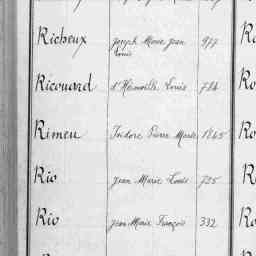 Richeux Joseph Marie Jean 977
Louis
Ricouard d'Hérouville Louis 784
Rimeu Isidore Pierre Marie 1845
Rio Jean Marie Louis 725
Rio Jean Marie François 332